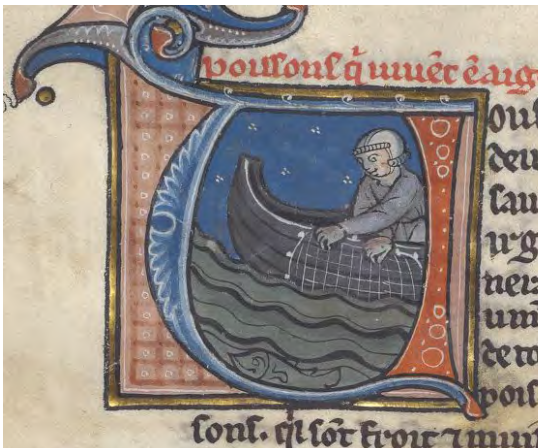 poissons q̃ uiuẽt ẽ aig
Uous
deu
sau
ner
de to
pois
sons. q̃l sõt froit ⁊